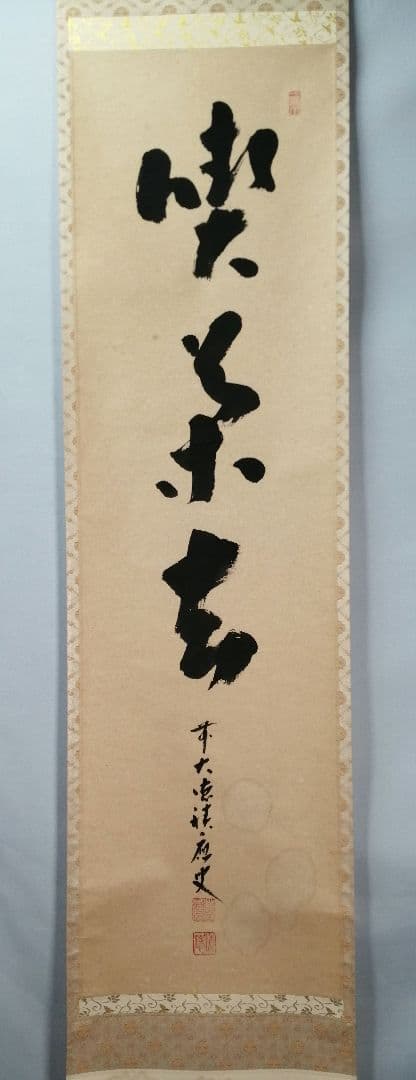 喫茶去
前大徳積應叟